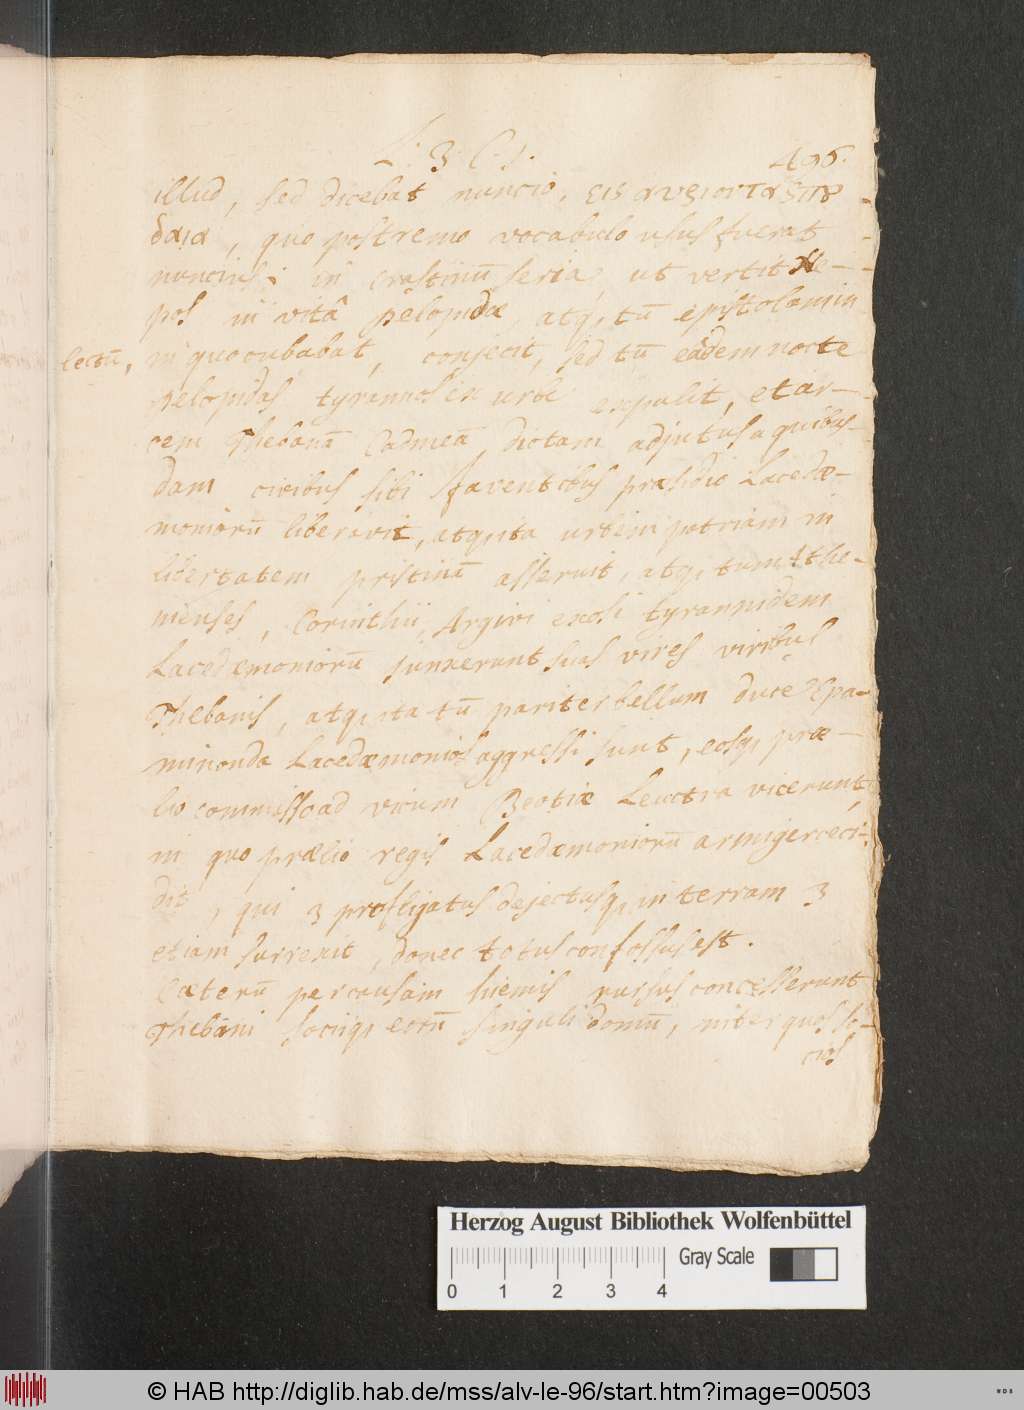 L: 3: C: 1.
496.
illud, sed dicebat nuncio, εις αυριον τα σπȣ
δαια, quo postremo vocabulo usus fuerat
nuncius: in crastinū seria, ut vertit Ne-
pos in vitâ Pelopidæ, atq, tū epistolam in
lectū, in quo cubabat, conjecit, sed tū eâdem nocte
Pelopidas tyrannos ex urbe expulit, et ar-
cem Thebanā Cadmeā dictam adjutus a quibus-
dam civibus sibi faventibus præsidio Lacedæ-
moniorū liberavit, atq, ita urbem patriam in
libertatem pristinū asseruit, atq, tum Athe-
nienses, Corinthii, Argivi exosi tyrannidem
Lacedæmoniorū junxerunt suas vires viribus
Thebanis, atq, ita tū pariter bellum duce Epa-
minonda Lacedæmonios aggressi sunt, eosq, præ-
lio commisso ad vicum Beotiæ Leuctra vicerunt,
in quo prælio regis Lacedæmoniorū armiger ceci-
dit, qui 3 profligatus dejectusq, in terram 3
etiam surrexit, donec totus confossus est.
Cæterū per causam hiemis rursus concesserunt
Thebani sociiq, eorū singuli domū, inter quos so-
cios
Herzog August Bibliothek Wolfenbüttel
0 1 2 3 4
Gray Scale
© HAB http://diglib.hab.de/mss/alv-le-96/start.htm?image=00503